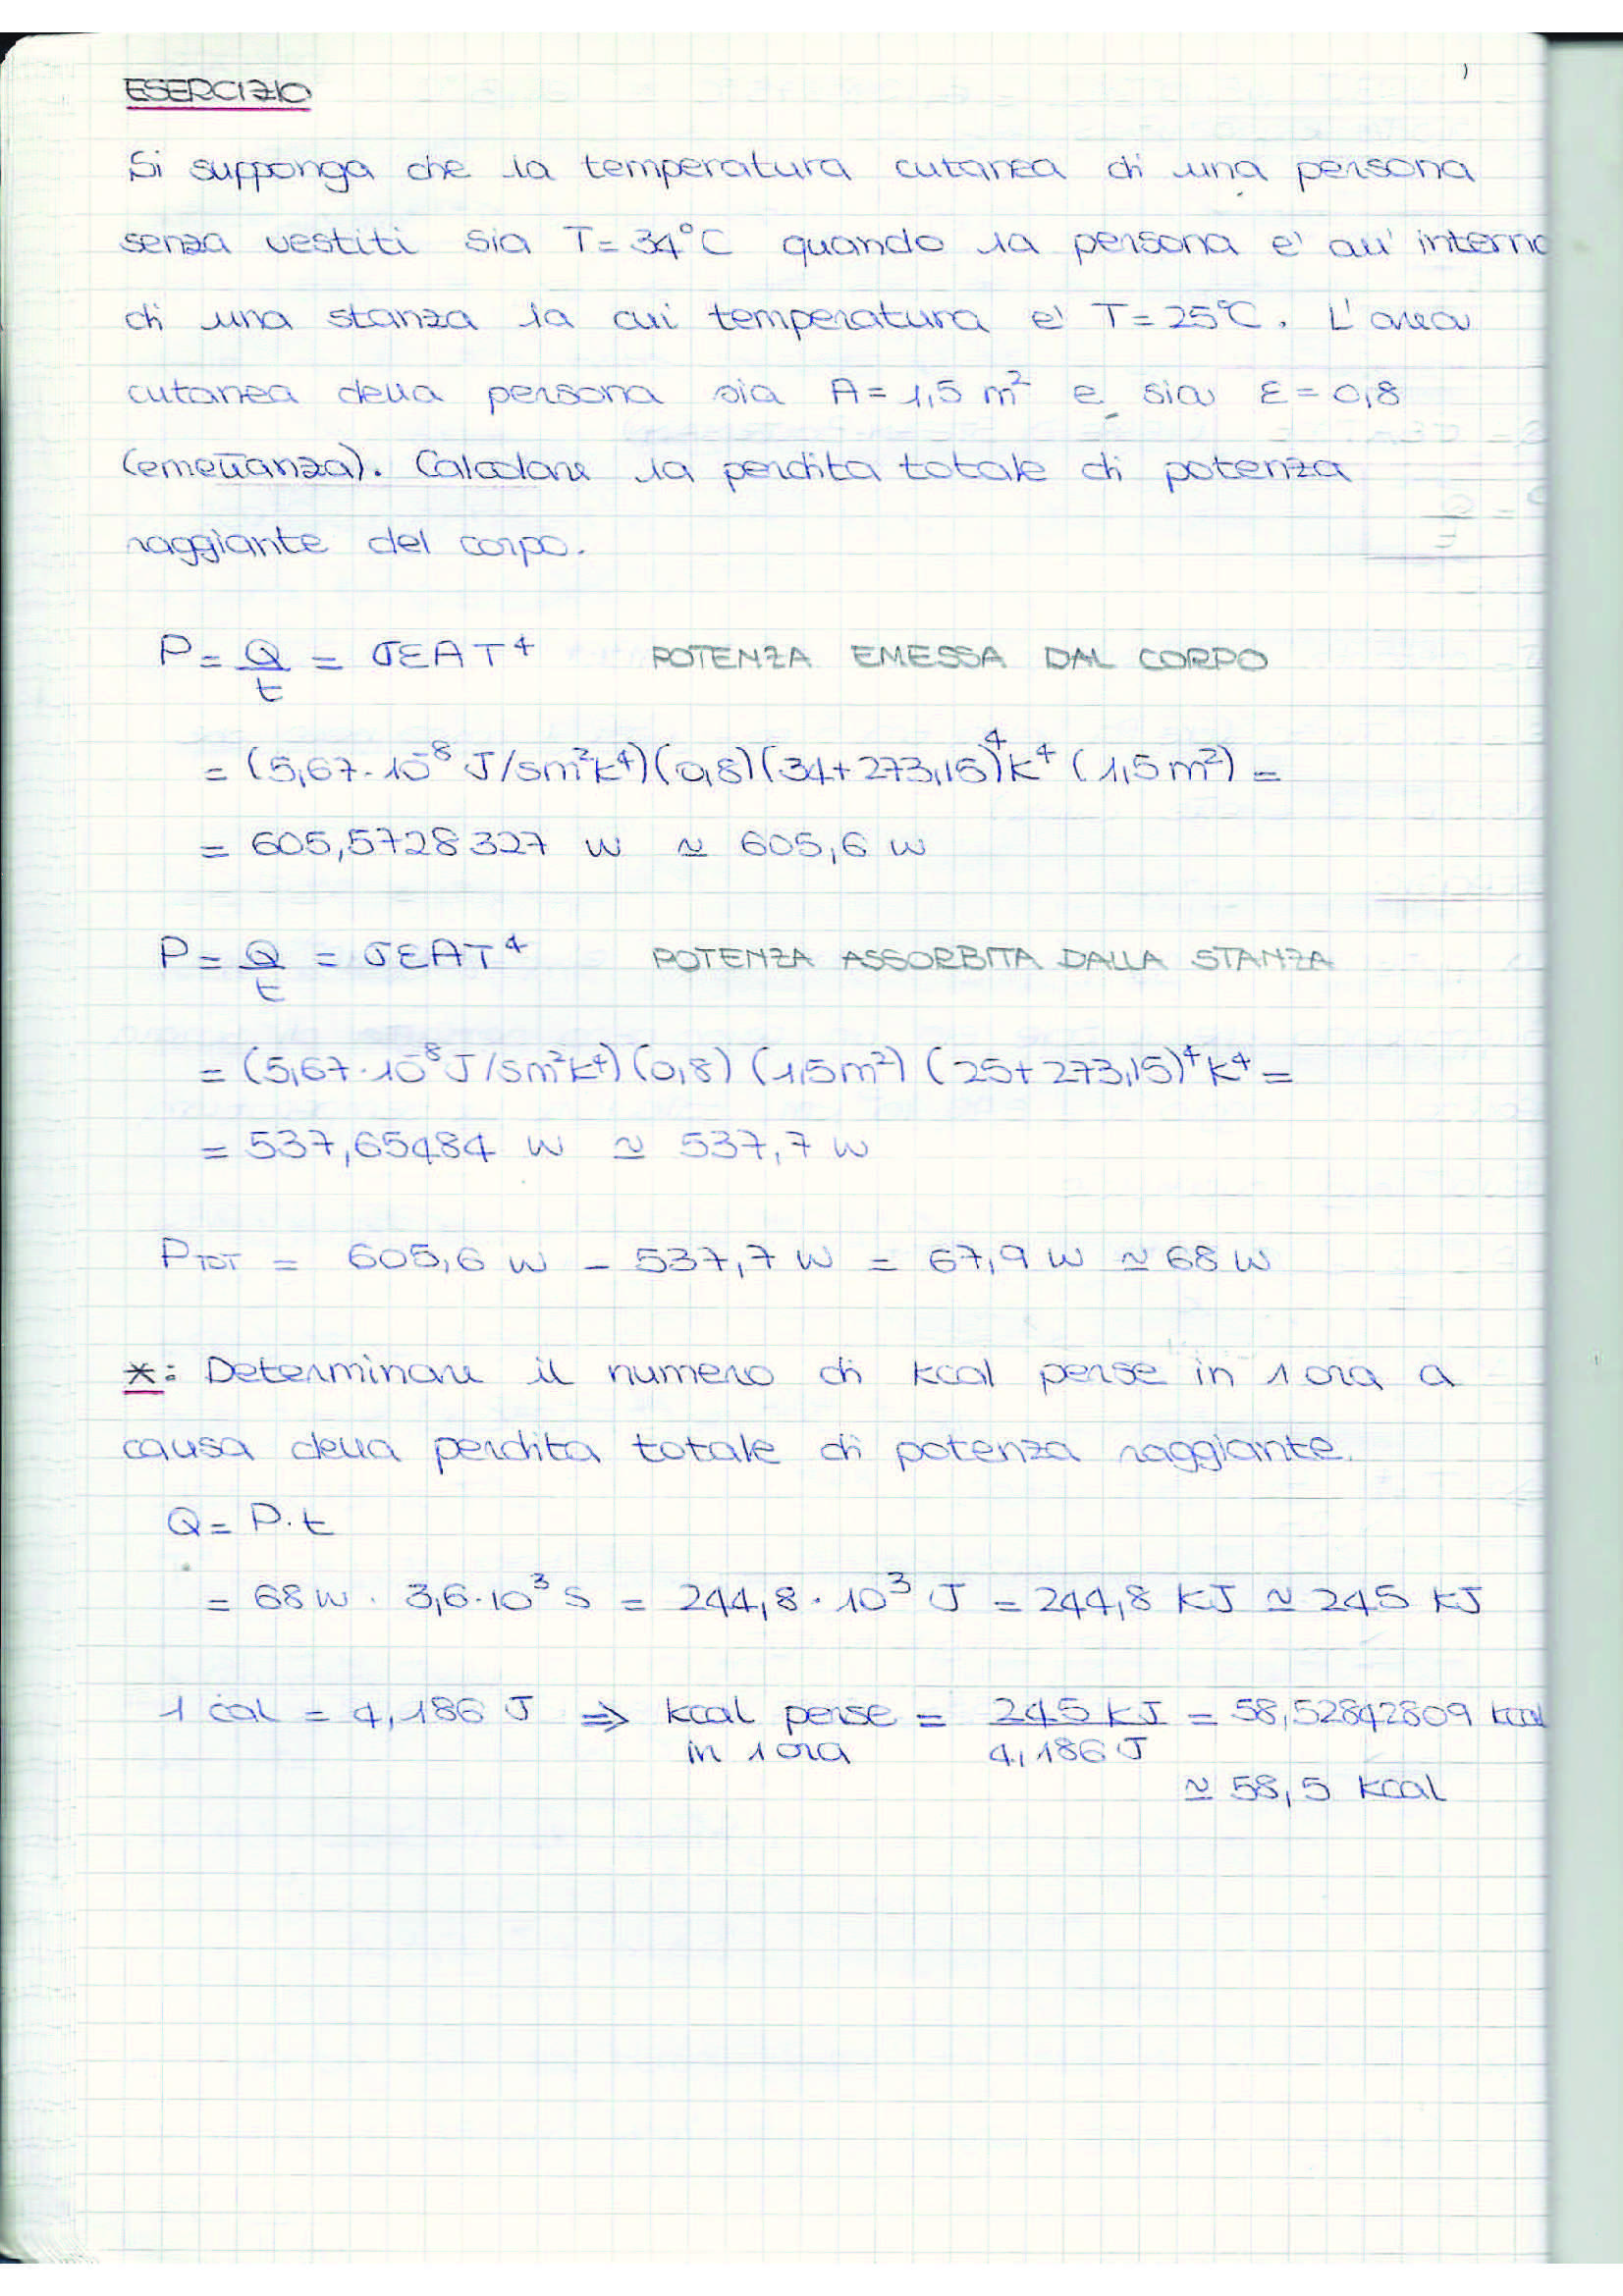 ESERCIZIO
Si supponga che la temperatura cutanea di una persona
senza vestiti sia T = 34°C quando la persona e' all' interno
di una stanza la cui temperatura e' T = 25°C. L' area
cutanea della persona sia A = 1,5 m² e sia ε = 0,8
(emettanza). Calcolare la perdita totale di potenza
raggiante del corpo.
P = Q/t = σεAT⁴ POTENZA EMESSA DAL CORPO
= (5,67 · 10⁻⁸ J/sm²k⁴)(0,8)(34+273,15)⁴k⁴ (1,5 m²) =
= 605,5728327 W ≃ 605,6 W
P = Q/t = σεAT⁴ POTENZA ASSORBITA DALLA STANZA
= (5,67 · 10⁻⁸ J/sm²k⁴)(0,8) (1,5m²) (25+273,15)⁴k⁴ =
= 537,65484 W ≃ 537,7 W
PTOT = 605,6 W - 537,7 W = 67,9 W ≃ 68 W
*: Determinare il numero di kcal perse in 1 ora a
causa della perdita totale di potenza raggiante.
Q = P · t
= 68 W · 3,6 · 10³ s = 244,8 · 10³ J = 244,8 KJ ≃ 245 KJ
1 cal = 4,186 J ⇒ kcal perse in 1 ora = 245 KJ / 4,186 J = 58,52842809 kcal
≃ 58,5 kcal